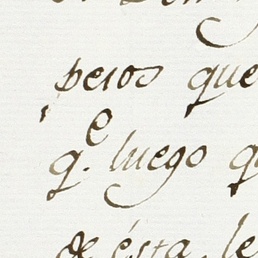 pesos que
q.e luego q
de ésta le